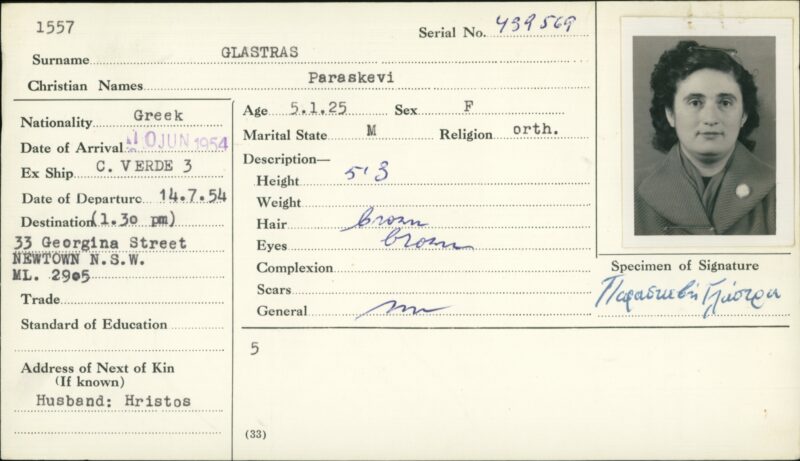 1557
Serial No. 439569
Surname GLASTRAS
Christian Names Paraskevi
Nationality Greek
Date of Arrival 10 JUN 1954
Ex Ship C. VERDE 3
Date of Departure 14.7.54
Destination (1.30 pm)
33 Georgina Street
NEWTOWN N.S.W.
ML. 2905
Trade
Standard of Education
Address of Next of Kin
(If known)
Husband: Hristos
Age 5.1.25 Sex F
Marital State M Religion orth.
Description—
Height 5'3
Weight
Hair brown
Eyes brown
Complexion
Scars
General
5
(33)
Specimen of Signature
Παρασκευή Γλάστρα